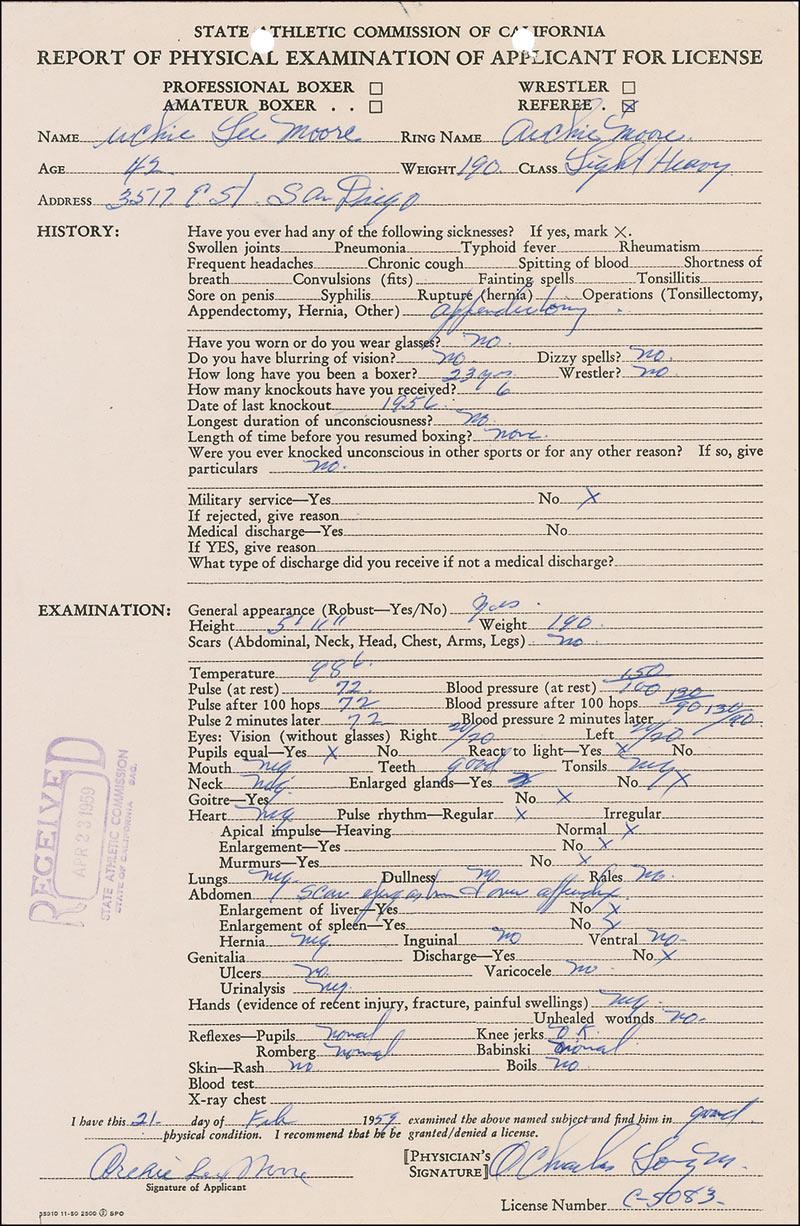 STATE ATHLETIC COMMISSION OF CALIFORNIA
REPORT OF PHYSICAL EXAMINATION OF APPLICANT FOR LICENSE
PROFESSIONAL BOXER ☐ WRESTLER ☐
AMATEUR BOXER . . ☐ REFEREE . ☒
NAME Archie Lee Moore RING NAME Archie Moore
AGE 42 WEIGHT 190 CLASS Light Heavy
ADDRESS 3517 E St. San Diego
HISTORY: Have you ever had any of the following sicknesses? If yes, mark ×.
Swollen joints Pneumonia Typhoid fever Rheumatism
Frequent headaches Chronic cough Spitting of blood Shortness of
breath Convulsions (fits) Fainting spells Tonsillitis
Sore on penis Syphilis Rupture (hernia) Operations (Tonsillectomy,
Appendectomy, Hernia, Other) appendectomy
Have you worn or do you wear glasses? no.
Do you have blurring of vision? no Dizzy spells? no.
How long have you been a boxer? 23 yrs Wrestler? no
How many knockouts have you received? 6
Date of last knockout 1956
Longest duration of unconsciousness? no.
Length of time before you resumed boxing? none.
Were you ever knocked unconscious in other sports or for any other reason? If so, give
particulars no.
Military service—Yes No X
If rejected, give reason
Medical discharge—Yes No
If YES, give reason
What type of discharge did you receive if not a medical discharge?
EXAMINATION: General appearance (Robust—Yes/No) yes.
Height 5' 11" Weight 190
Scars (Abdominal, Neck, Head, Chest, Arms, Legs) no
Temperature 98 6
Pulse (at rest) 72 Blood pressure (at rest) 150/100
Pulse after 100 hops 72 Blood pressure after 100 hops 130/90
Pulse 2 minutes later 72 Blood pressure 2 minutes later 130/90
Eyes: Vision (without glasses) Right 20/20 Left 20/20
Pupils equal—Yes X No React to light—Yes X No
Mouth neg Teeth good Tonsils neg
Neck neg. Enlarged glands—Yes No X
Goitre—Yes No X
Heart neg Pulse rhythm—Regular X Irregular
Apical impulse—Heaving Normal X
Enlargement—Yes No X
Murmurs—Yes No X
Lungs neg. Dullness no Rales no.
Abdomen Scar over appendix
Enlargement of liver—Yes No X
Enlargement of spleen—Yes No X
Hernia neg. Inguinal no Ventral no-
Genitalia Discharge—Yes No X
Ulcers no. Varicocele no
Urinalysis neg.
Hands (evidence of recent injury, fracture, painful swellings) neg.
Unhealed wounds no-
Reflexes—Pupils normal Knee jerks O K
Romberg normal Babinski normal
Skin—Rash no Boils no
Blood test
X-ray chest
I have this 21- day of Feb 1959 examined the above named subject and find him in good
physical condition. I recommend that he be granted/denied a license.
Archie Lee Moore [PHYSICIAN'S SIGNATURE]
Signature of Applicant
License Number C-5083-
35910 11-50 2500 SPO
RECEIVED
APR 23 1959
STATE ATHLETIC COMMISSION
STATE OF CALIFORNIA SAC.